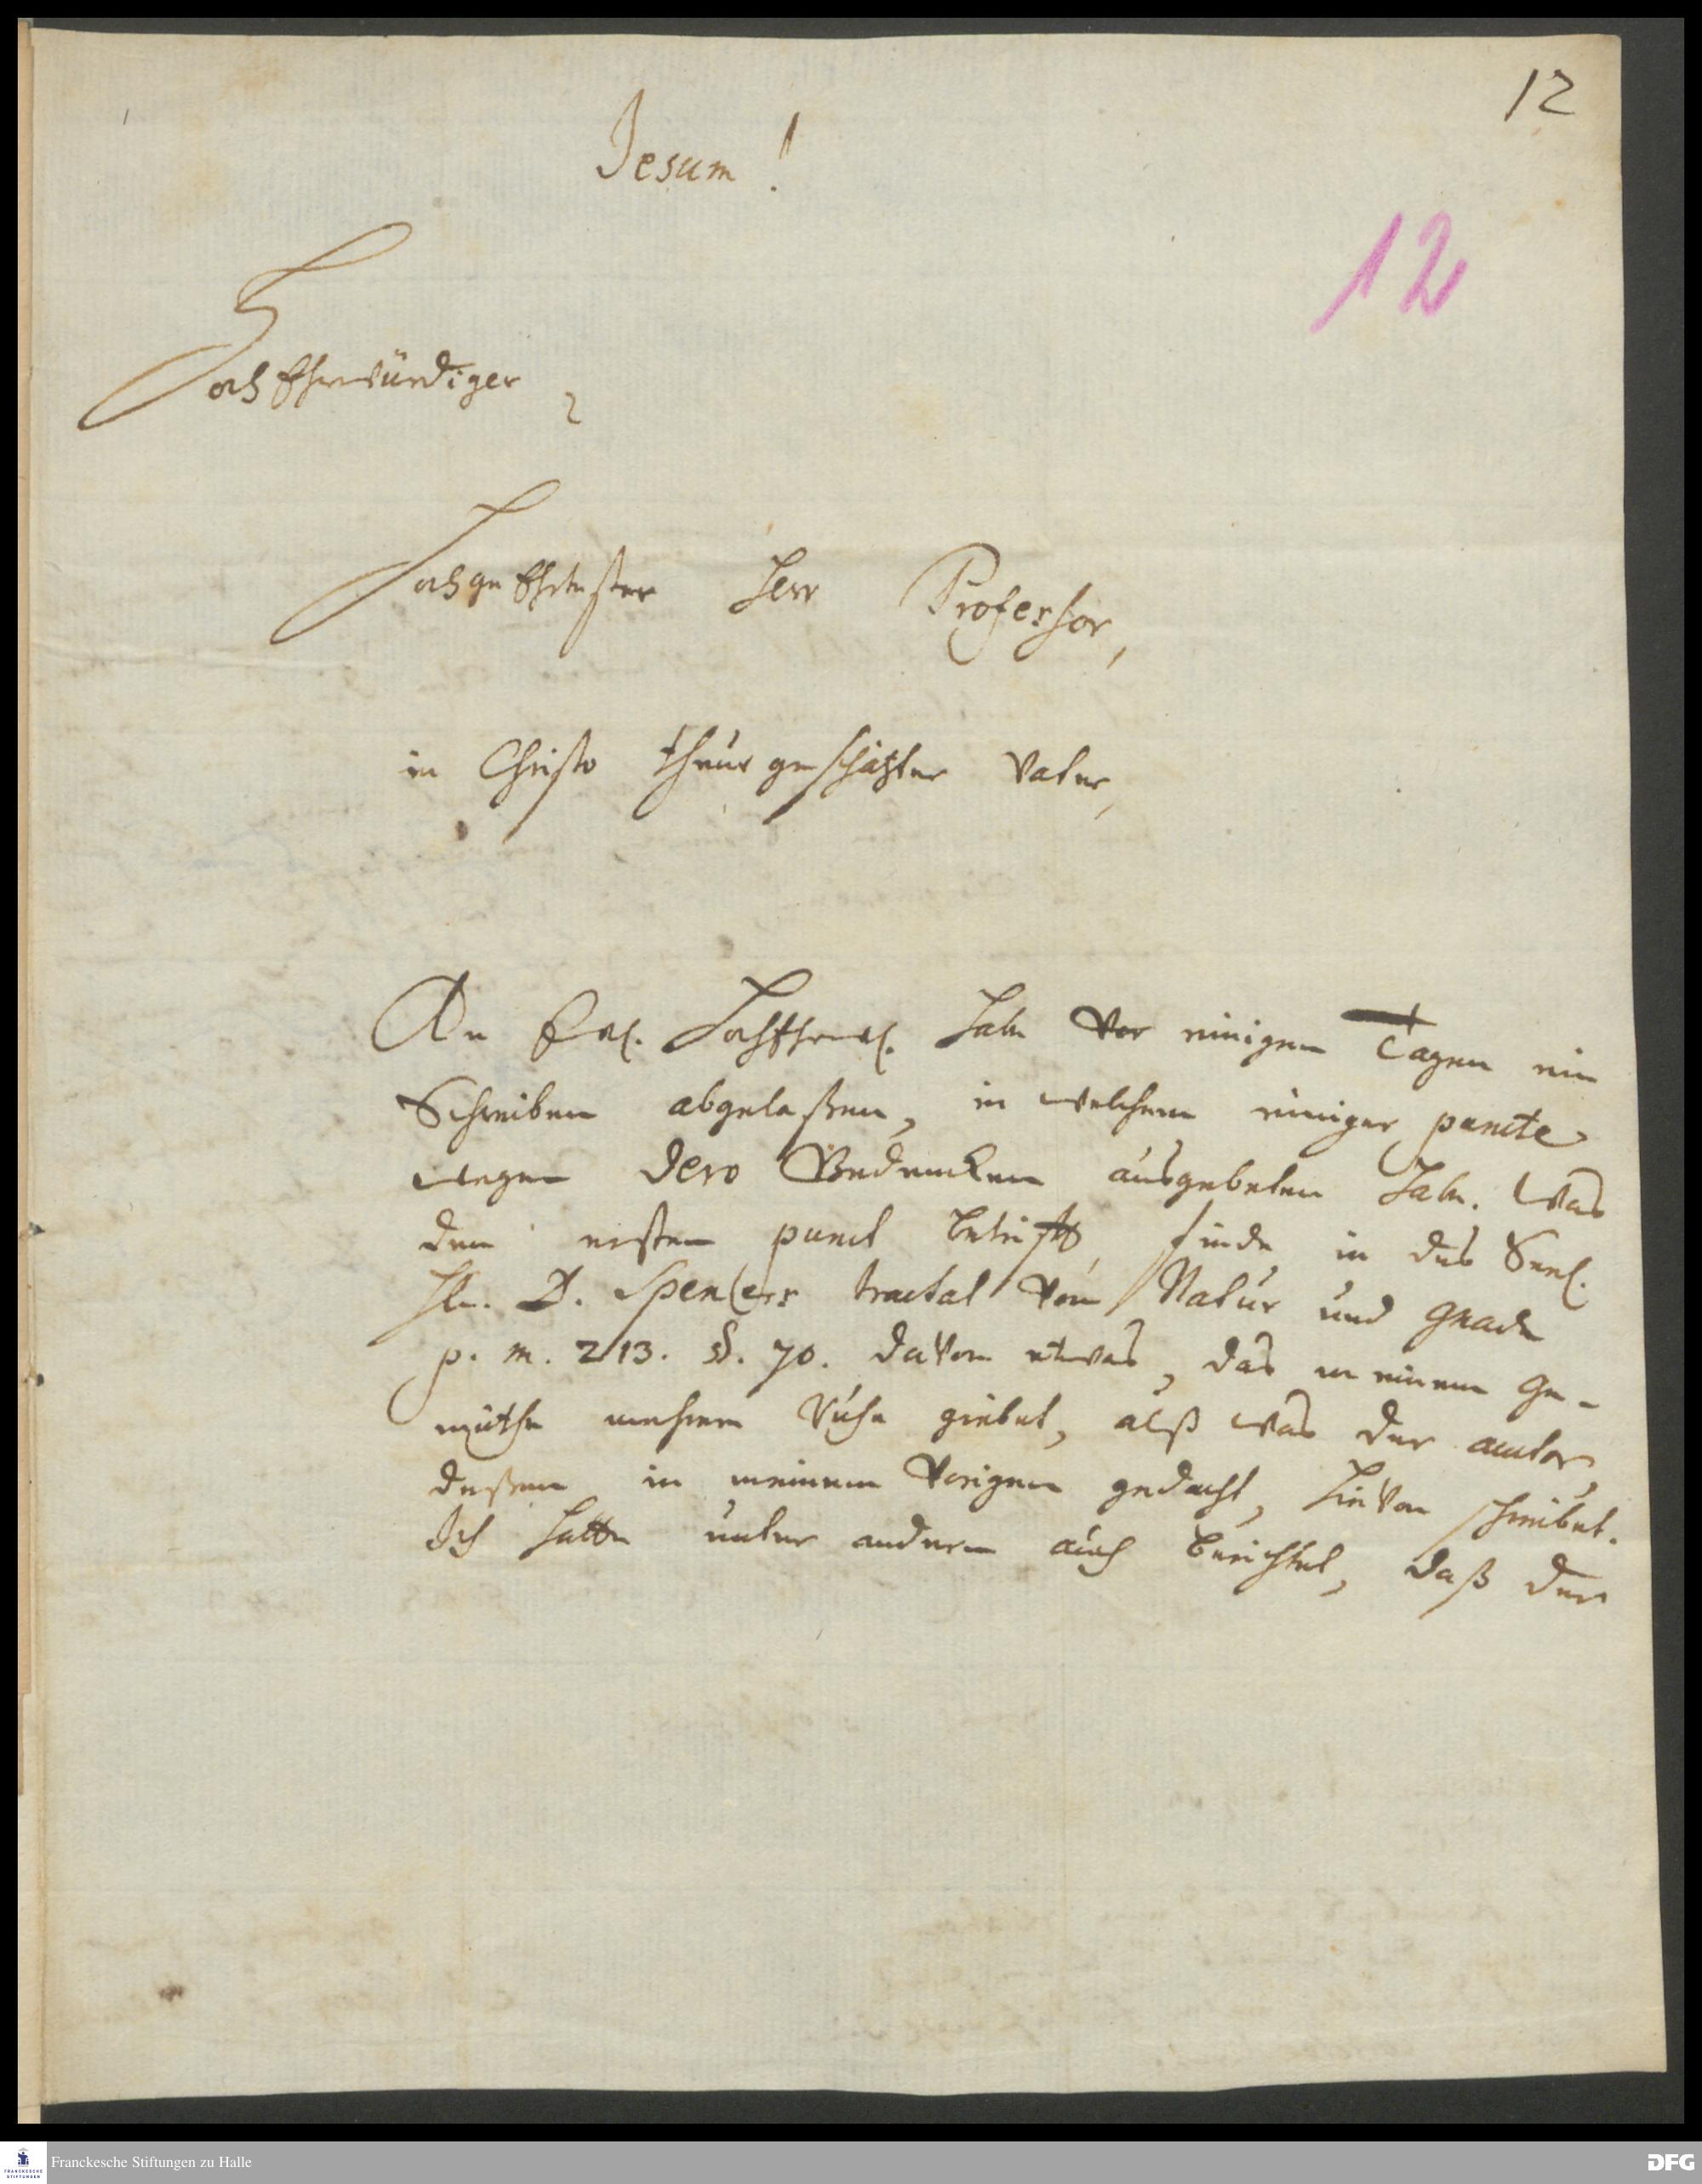 12
Jesum!
12
HochEhrwürdiger,
HochgeEhrtester Herr Professor,
in Christo theur geschätzter Vater,
An Ew. HochEhrw. habe vor einigen Tagen ein
Schreiben abgelaßen, in welchem einiger puncte
wegen dero Bedencken ausgebeten habe. Was
den ersten punct betrifft, finde in des Seel.
Hln. D. Speners tractat von Natur und Gnade
p. m. 213. §. 70. davon etwas, das meinem Ge-
müthe mehrere Ruhe giebet, alß was der autor,
deßen in meinem Vorigen gedacht, hievon schreibet.
Ich hatte unter andern auch berichtet, daß der
Franckesche Stiftungen zu Halle
FRANCKESCHE
STIFTUNGEN
DFG